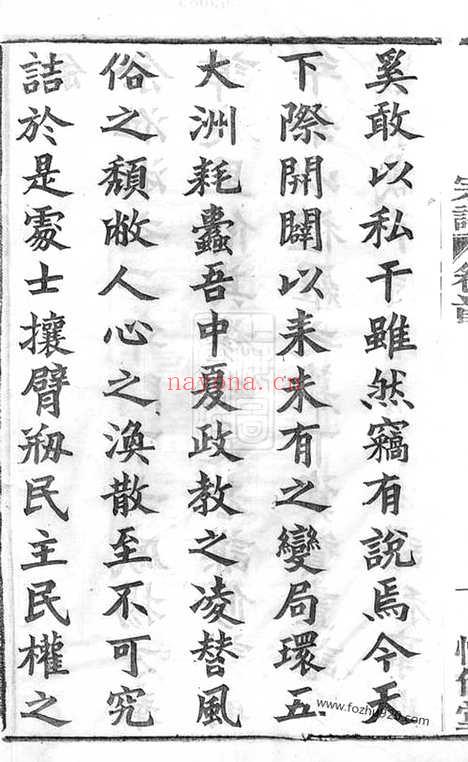 奚敢以私干雖然竊有説焉今天
下際開闢以来未有之變局環五
大洲耗蠹吾中夏政教之凌替風
俗之頽敝人心之渙散至不可究
詰於是處士攘臂剏民主民權之
nayona.cn
www.fozhu920.com